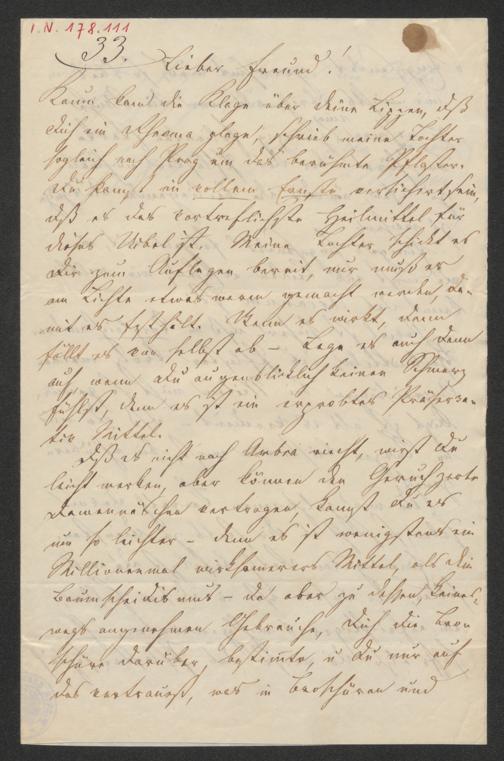 I.N. 178.111
33.
Lieber Freund!
Kaum kam die Klage über deine Lippen, daß
dich ein Rheuma plage, schrieb meine Tochter
sogleich nach Prag um das berühmte Pflaster.
Du kannst in vollem Ernste versichert sein,
daß es das vortrefflichste Heilmittel für
dieses Uibel ist. Meine Tochter schickt es
Dir zum Auflegen bereit, nur muß es
am Lichte etwas warm gemacht werden, da-
mit es festhält. Wenn es wirkt, dann
fällt es von selbst ab – Lege es auch dann
auf wenn Du augenblicklich keinen Schmerz
fühlst, denn es ist ein erprobtes Präserva-
tiv Mittel.
Daß es nicht nach Ambra riecht, wirst Du
leicht merken, aber können den Geruch zarte
Damennäschen vertragen, kannst Du es
um so leichter – denn es ist wenigstens ein
Millionenmal wirksameres Mittel, als dein
Baunscheidtismus – da aber zu dessen, keines-
wegs angenehmen Gebrauche, Dich die Bro-
schüre darüber, bestimmte, u Du nur auf
das vertraust, was in Broschüren und